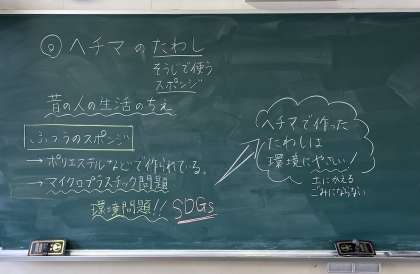 ◎ ヘチマのたわし
そうじで使う
スポンジ
昔の人の生活のちえ
ふつうのスポンジ
→ポリエステルなどで作られている。
→マイクロプラスチック問題
環境問題!! SDGs
ヘチマで作った
たわしは
環境にやさしい!
土にかえる
ごみにならない